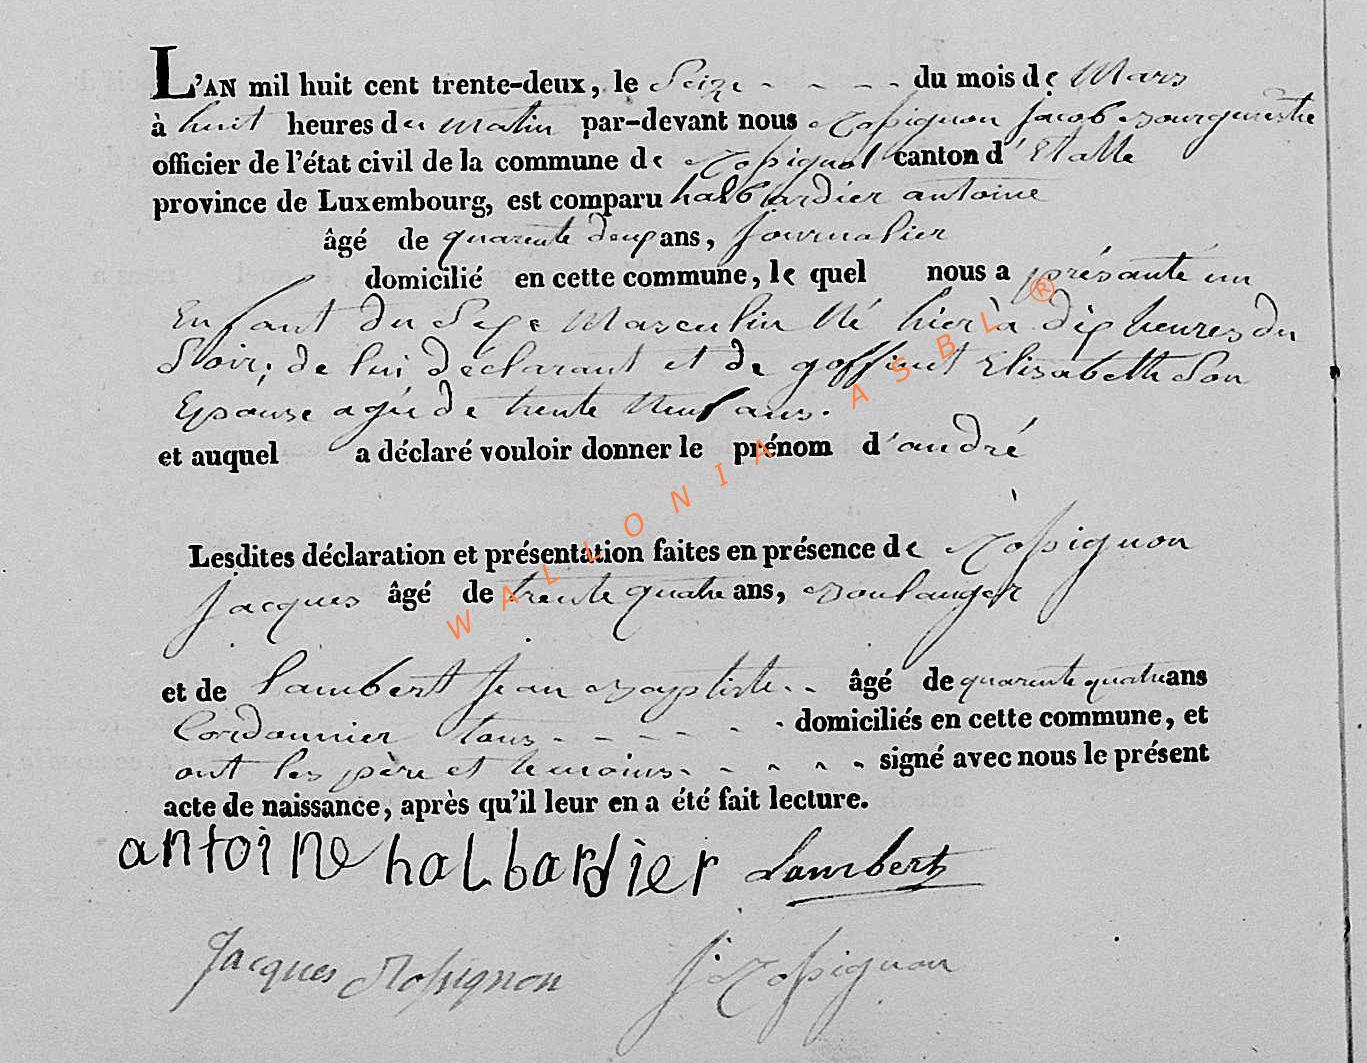 L'AN mil huit cent trente-deux, le Seize - - - - du mois de Mars
à huit heures du matin par-devant nous Rossignon Jacob Bourguemestre
officier de l'état civil de la commune de Rossignol canton d'Etalle
province de Luxembourg, est comparu halbardier antoine
âgé de quarente deux ans, Journalier
domicilié en cette commune, le quel nous a présanté un
Enfant du Sexe Masculin Né hier à dix heures du
Soir, de lui déclarant et de goffinet Elisabeth Son
Epouse agée de trente Neuf ans.
et auquel a déclaré vouloir donner le prénom d'andré
Lesdites déclaration et présentation faites en présence de Rossignon
Jacques âgé de trente quatre ans, Boulanger
et de Lambert Jean Baptiste - - âgé de quarente quatre ans
Cordonnier tous - - - - - - domiciliés en cette commune, et
ont les père et temoins - - - - - signé avec nous le présent
acte de naissance, après qu'il leur en a été fait lecture.
antoine halbardier Lambert
Jacques Rossignon J Rossignon
WALLONIA ASBL ®